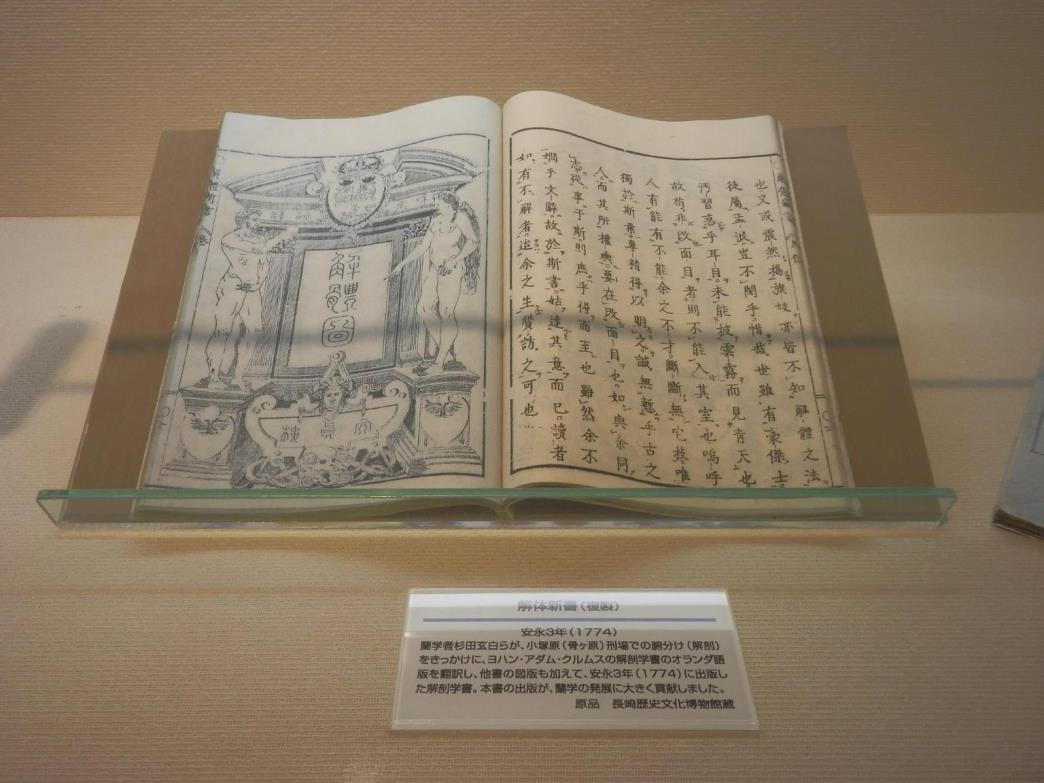 也又或震然揭旗鼓亦皆不知解體之法
從屬孟浪豈不閔乎惜哉世雖有豪傑士
汚習惑乎耳目未能披雲霧而見青天也
故苟非改面目者則不能入其室也嗚呼
人有能有不能余之不才斷斷無它技唯
獨於斯業專精得以明之誠無慙乎古之
人而其所權輿要在改面目也如與余同
志從事于斯則庶乎得而至也雖然余不
嫺乎文辭故於斯書姑達其意而已讀者
如有不解者迨余之生質訪之可也
解體圖
解體新書
解体新書(複製)
安永3年(1774)
蘭学者杉田玄白らが、小塚原(骨ヶ原)刑場での腑分け(解剖)
をきっかけに、ヨハン・アダム・クルムスの解剖学書のオランダ語
版を翻訳し、他書の図版も加えて、安永3年(1774)に出版し
た解剖学書。本書の出版が、蘭学の発展に大きく貢献しました。
原品　長崎歴史文化博物館蔵